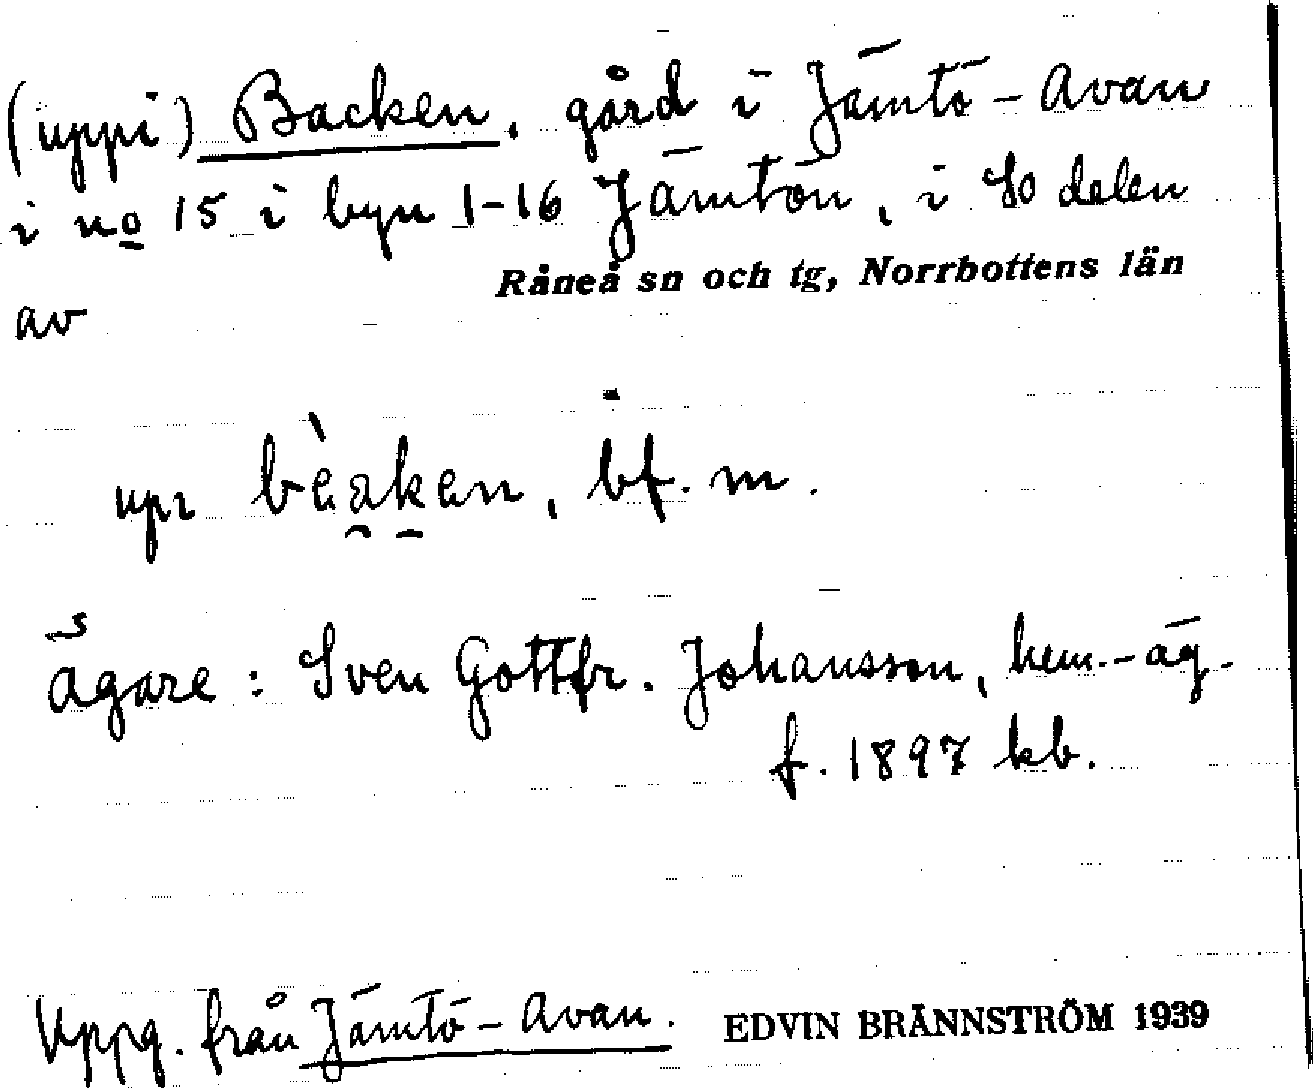 (uppi) Backen, gård i Jämtö-Avan
i no 15 i byn 1-16 Jämtön, i SO delen
av Råneå sn och tg, Norrbottens län
upı bèaken, bf. m.
ägare: Sven Gottfr. Johansson, hem.-äg.
f. 1897 kb.
Uppg. från Jämtö-Avan. EDVIN BRÄNNSTRÖM 1939